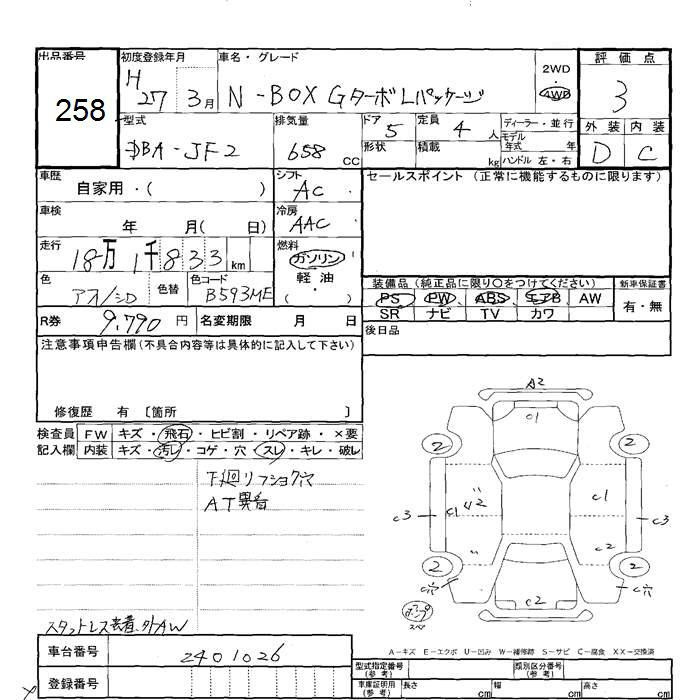 出品番号
258
初度登録年月
H 27 3月
車名・グレード
N-BOX GターボLパッケージ
2WD
・
4WD
評価点
3
外装 内装
D C
型式
DBA-JF2
排気量
658 cc
ドア
5
形状
定員
4 人
積載
kg
ディーラー・並行
モデル年式 年
ハンドル 左・右
車歴
自家用・( )
シフト
AC
車検
年 月( 日)
冷房
AAC
走行
18万1千833km
燃料
ガソリン
軽油
・
色
アオ/シロ
色替
色コード
B593ME
R券
9,790 円
名変期限 月 日
セールスポイント (正常に機能するものに限ります)
装備品 (純正品に限り○をつけてください)
PS PW ABS エアB AW
SR ナビ TV カワ
新車保証書
有・無
後日品
注意事項申告欄(不具合内容等は具体的に記入して下さい)
修復歴 有 〔箇所 〕
検査員
記入欄
FW キズ・飛石・ヒビ割・リペア跡・×要
内装 キズ・汚レ・コゲ・穴・スレ・キレ・破レ
下廻リフショク穴
AT異音
スタットレス装着、外AW
A2
C1
2
2
U2
C1
C1
C3
C3
C2
2
2
C穴
C穴
C2
スペ
A-キズ E-エクボ U-凹み W-補修跡 S-サビ C-腐食 XX-交換済
車台番号
2401026
登録番号
型式指定番号
(参考)
類別区分番号
(参考)
車庫証明用
(参考)
長さ cm
幅 cm
高さ cm